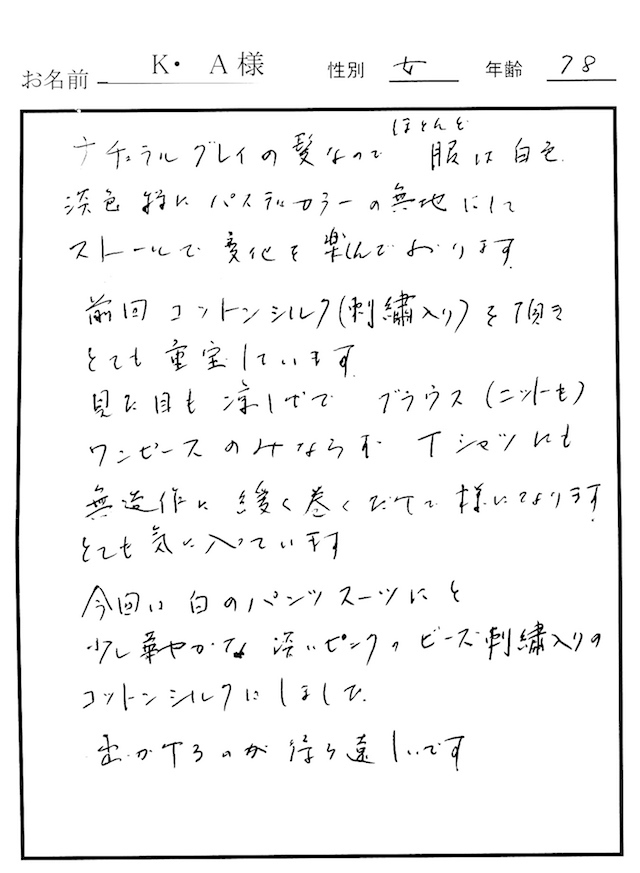 お名前 K・A様 性別 女 年齢 78
ほとんど
ナチュラルグレイの髪なので 服は白色
淡色 特に パステルカラーの無地にして
ストールで変化を楽しんでおります
前回 コットンシルク(刺繍入り)を頂き
とても重宝しています
見た目も涼しげで ブラウス(ニットも)
ワンピースのみならず Tシャツにも
無造作に緩く巻くだけで様になります
とても気に入っています
今回は白のパンツスーツにと
少し華やかな 淡いピンクのビーズ刺繍入りの
コットンシルクにしました
出かけるのが待ち遠しいです